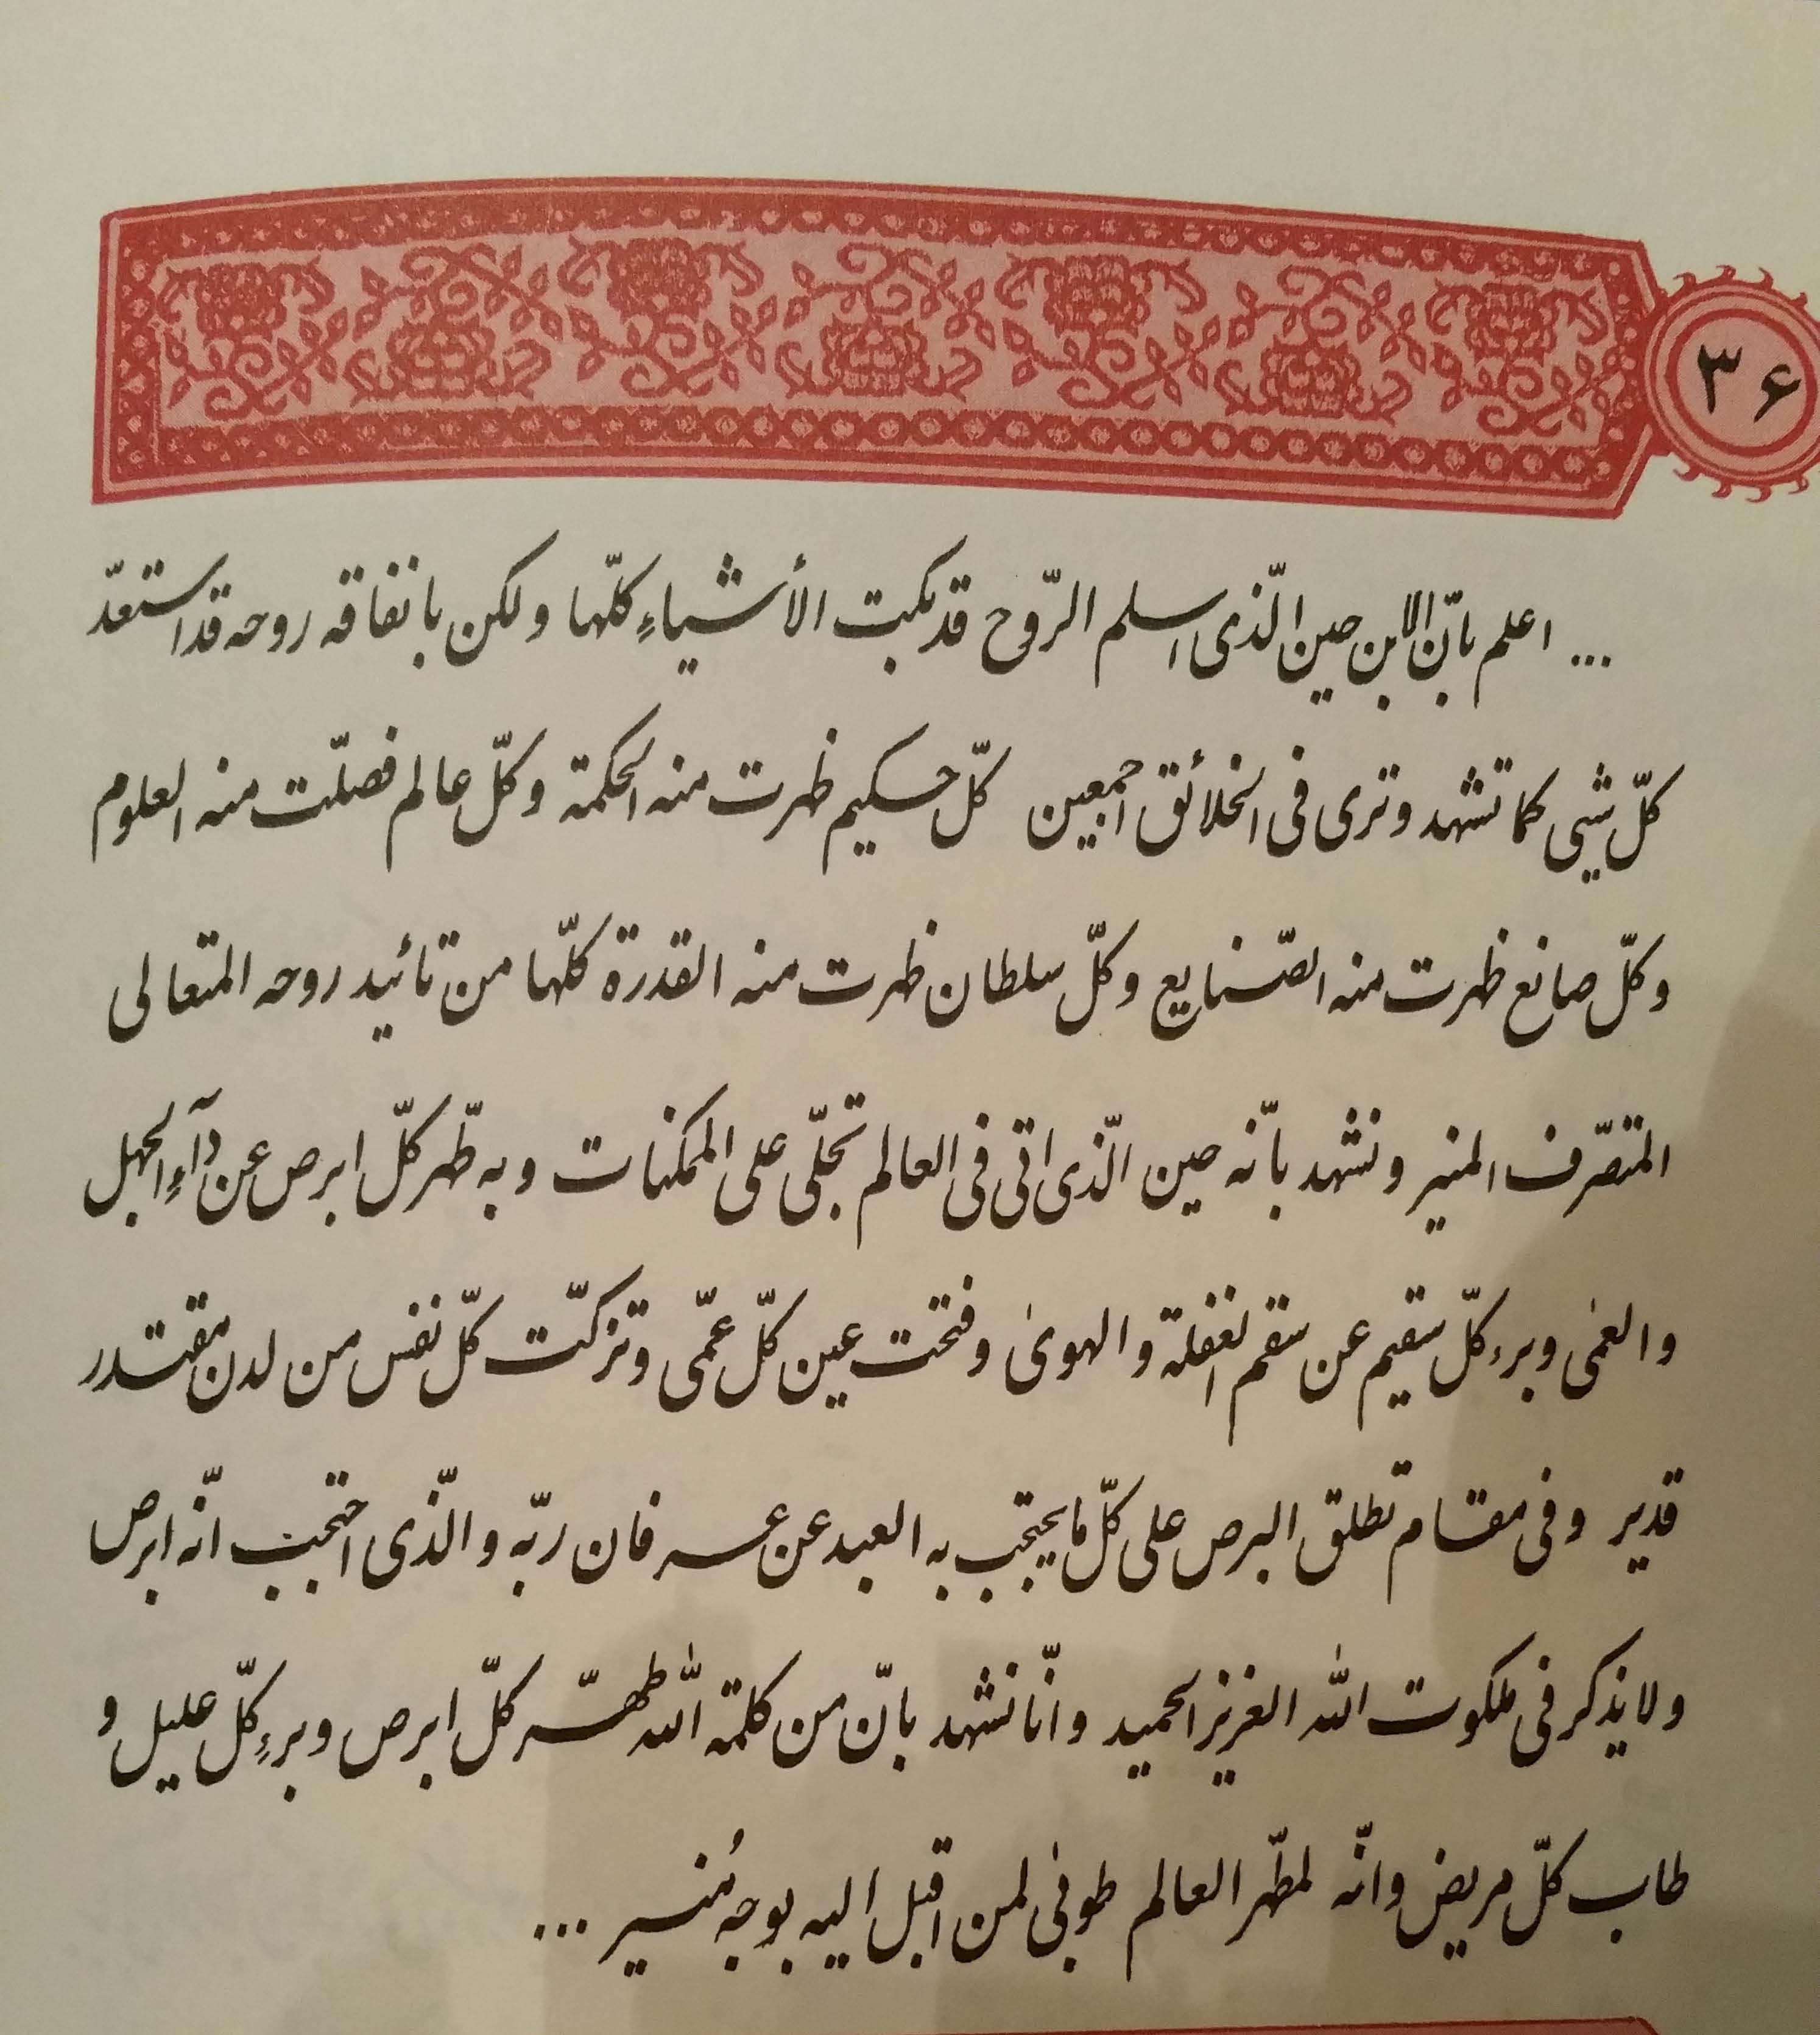 ۳۶
... اعلم بانّ الابن حين الّذى اسلم الرّوح قد بكت الأشياءِ كلّها ولكن بانفاقه روحه قد استعدّ
كلّ شيى كما تشهد وترى فى الخلائق اجمعين كلّ حكيم ظهرت منه الحكمة وكلّ عالم فصّلت منه العلوم
وكلّ صانع ظهرت منه الصّنايع وكلّ سلطان ظهرت منه القدرة كلّها من تائيد روحه المتعالى
المتصرّف المنير ونشهد بانّه حين الّذى اتى فى العالم تجلّى على الممكنات وبه طهّر كلّ ابرص عن دآءِ الجهل
والعمٰى وبرء كلّ سقيم عن سقم الغفلة والهوىٰ وفتحت عين كلّ عمّى وتزكّت كلّ نفس من لدن مقتدر
قدير وفى مقام تطلق البرص على كلّ ما يحتجب به العبد عن عرفان ربّه والّذى احتجب انّه ابرص
ولا يذكر فى ملكوت اللّه العزيز الحميد وانّا نشهد بانّ من كلمة اللّه طهّر كلّ ابرص وبرءِ كلّ عليل و
طاب كلّ مريض وانّه لمطّهر العالم طوبى لمن اقبل اليه بوجه مُنير ...